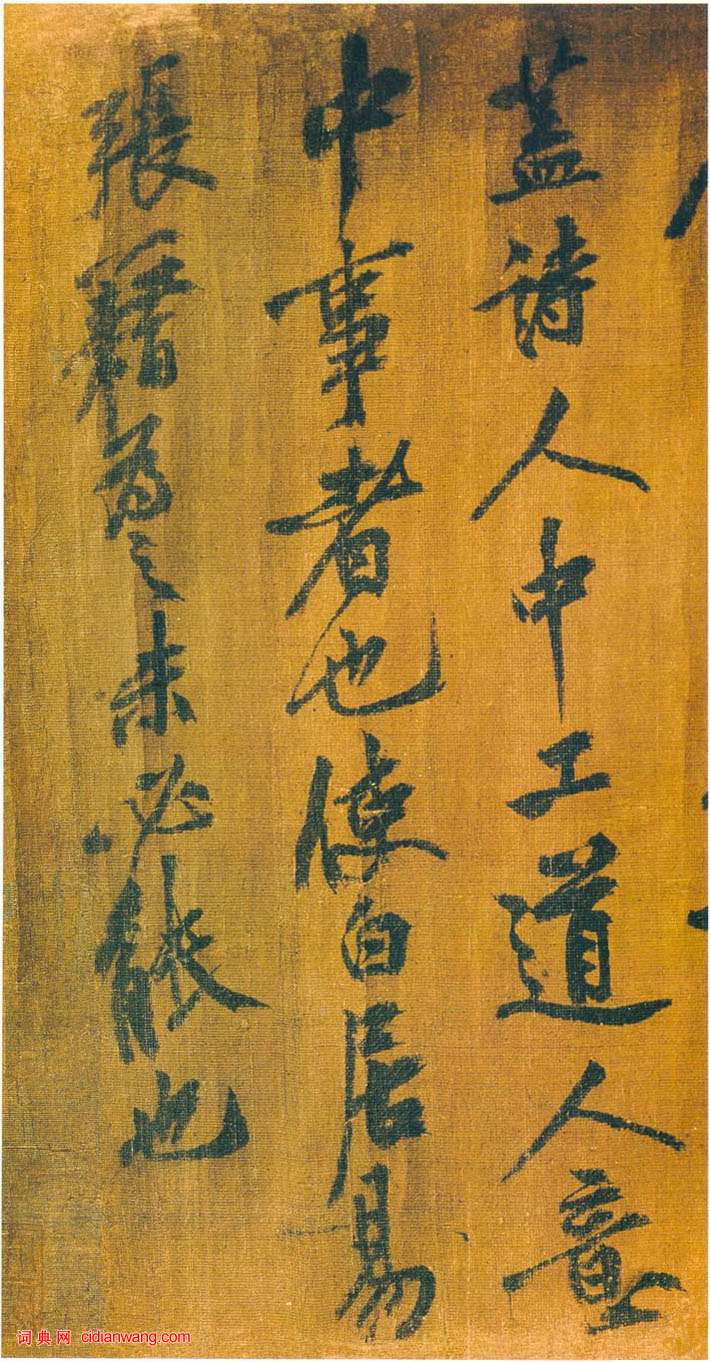 蓋詩人中工道人意
中事者也使白居易
張籍為之未必能也
词典网 cidianwang.com